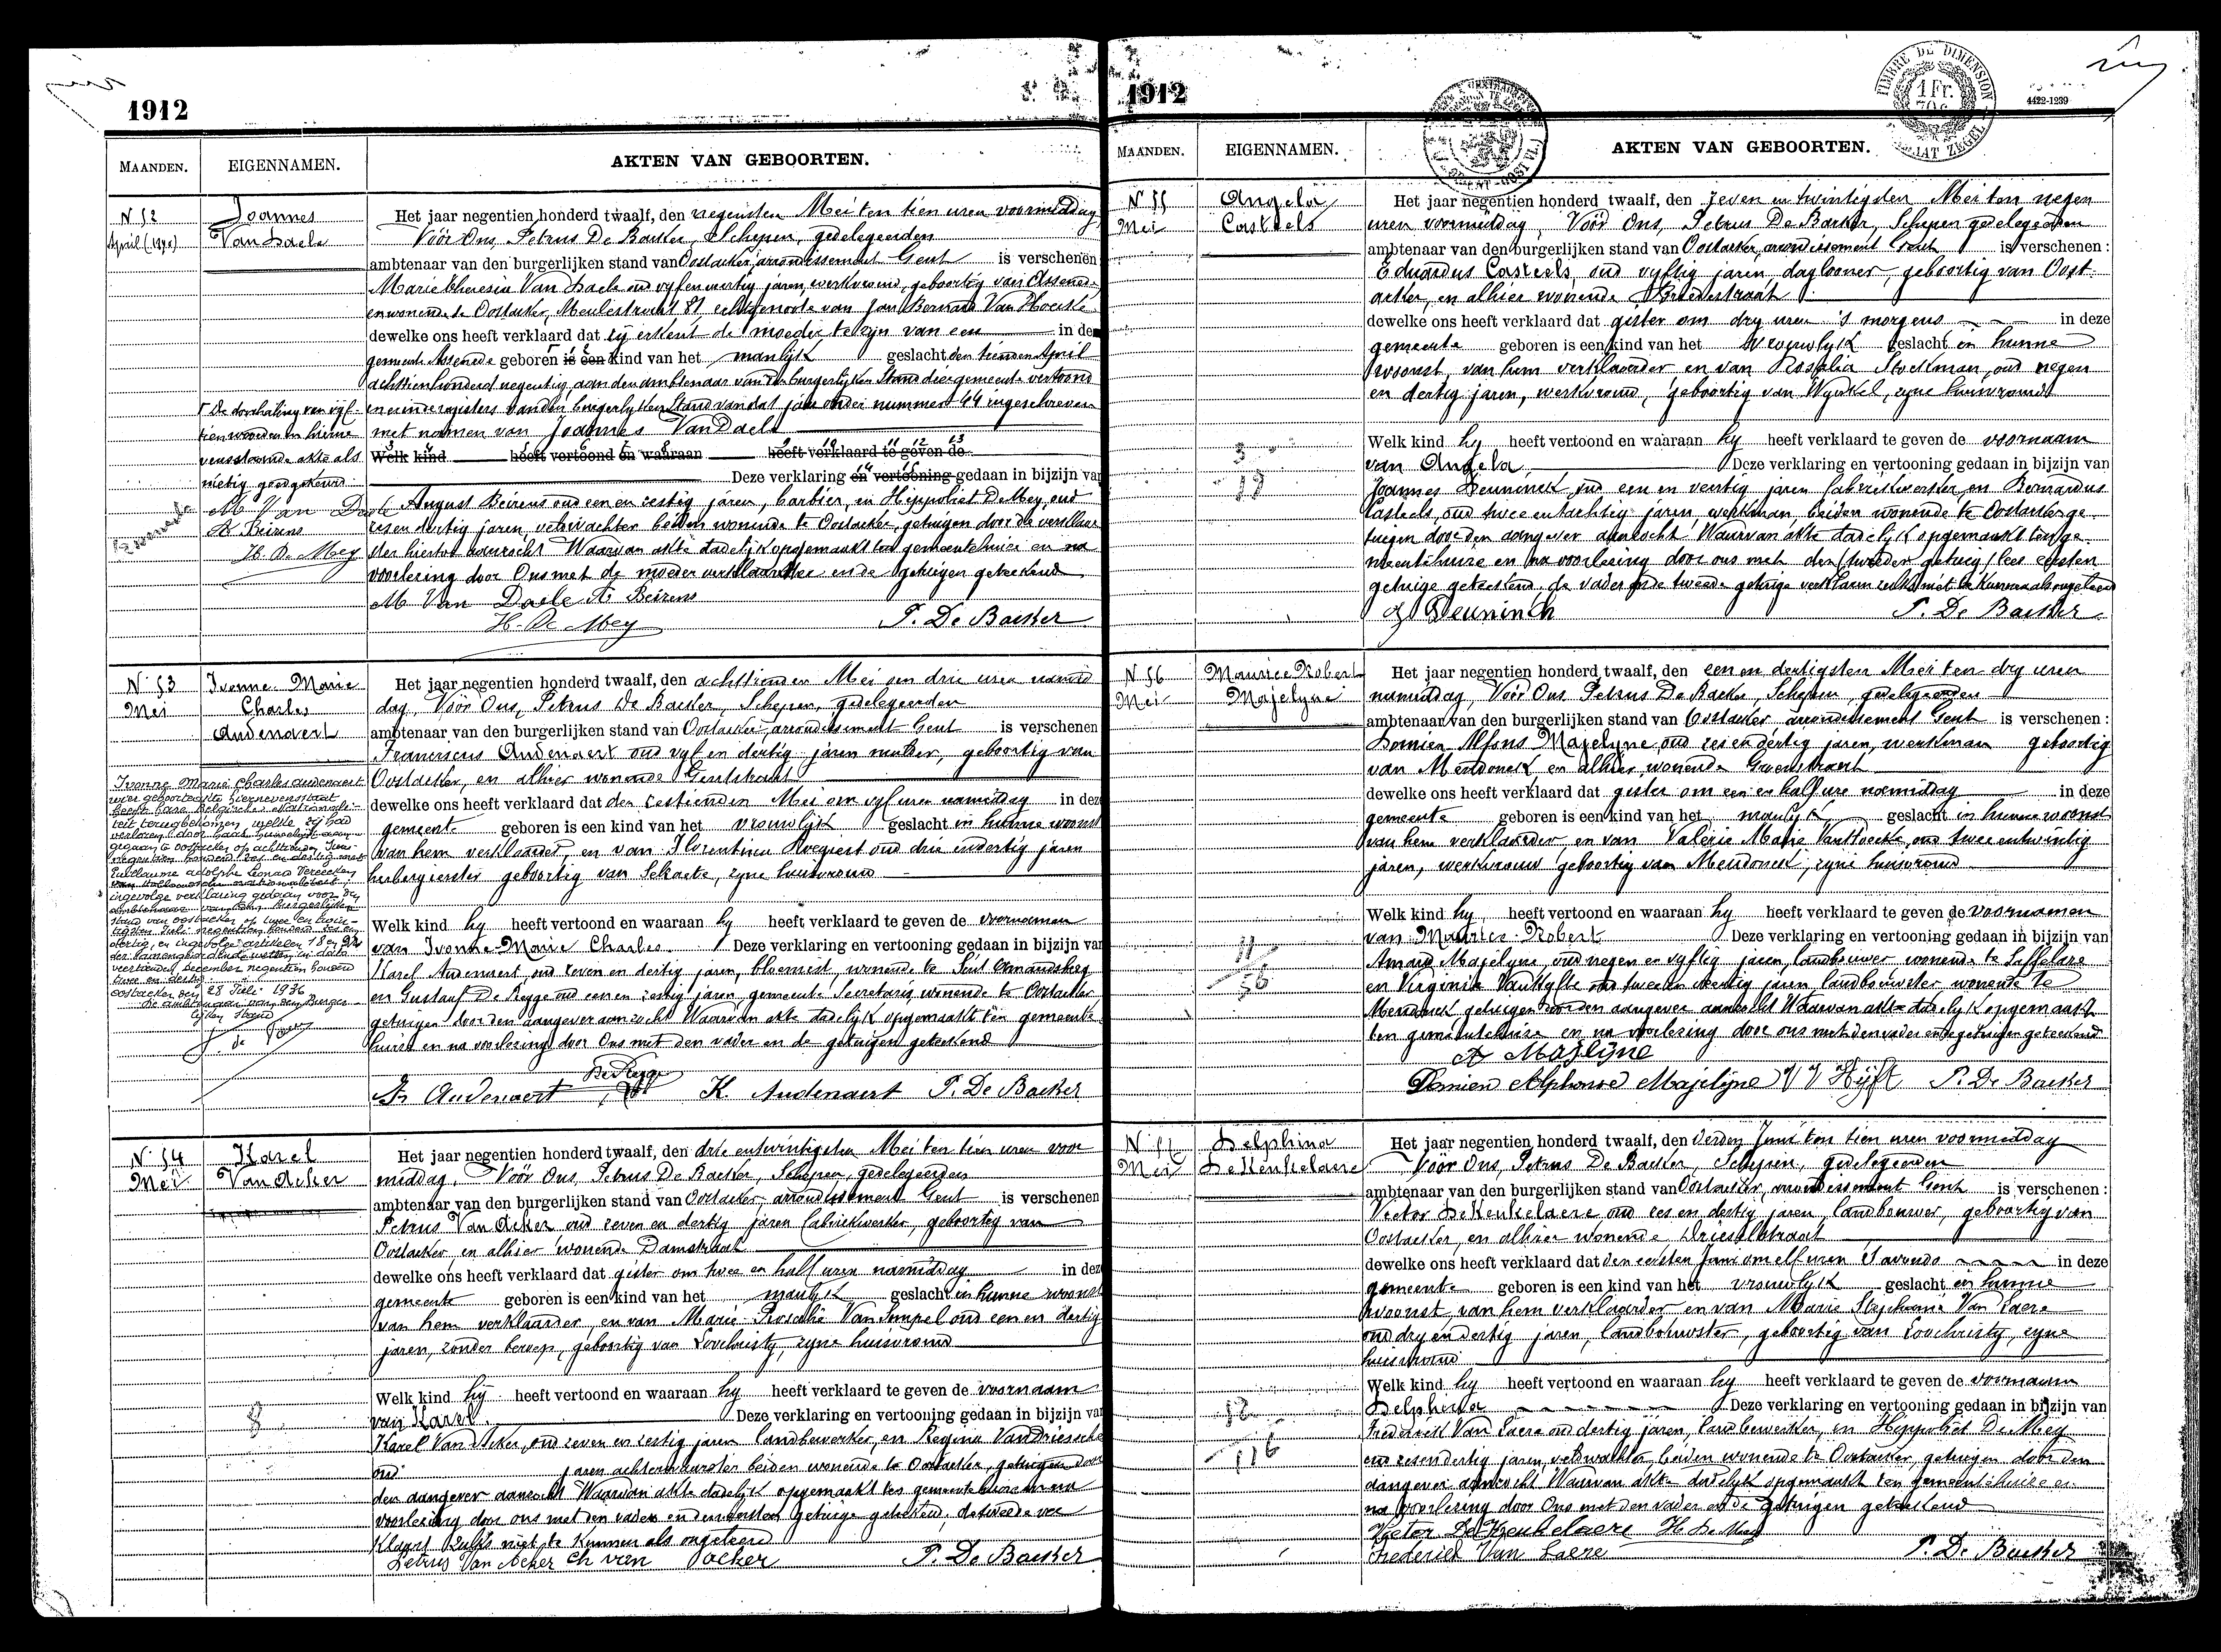 1912
MAANDEN. EIGENNAMEN. AKTEN VAN GEBOORTEN.
N 52
April (1890)
Joannes
Van Daele
Het jaar negentien honderd twaalf, den negensten Mei ten tien uren voormiddag
Vóór Ons, Petrus De Backer, Schepen, gedelegeerden
ambtenaar van den burgerlijken stand van Oostacker, arrondissement Gent is verschenen
Marie Theresia Van Daele oud vyf en veertig jaren, werkvrouw, geboortig van Assenede
en wonende te Oostacker, Meulestraat 81 echtgenoote van Jan Bernard Van Hoecke
dewelke ons heeft verklaard dat zy erkent de moeder te zyn van een in de
gemeente Assenede geboren is een kind van het manlijk geslacht den tienden April
achttien honderd negentig, aan den ambtenaar van den burgerlyken Stand dier gemeente vertoond
en in de registers van den burgerlyken Stand van dat jaar onder nummer 44 ingeschreven
met namen van Joannes Van Daele
Welk kind heeft vertoond en waaraan heeft verklaard te geven de
Deze verklaring en vertooning gedaan in bijzijn van
August Beirens oud een en zestig jaren, barbier, en Hippoliet De Mey, oud
zes en dertig jaren, veldwachter beiden wonende te Oostacker, getuigen door de verklaar
ster hiertoe aanzocht Waarvan akte dadelijk opgemaakt ten gemeentehuize en na
voorlezing door Ons met de moeder verklaarster en de getuigen geteekend
M Van Daele A. Beirens
H. De Mey P. De Backer
De doorhaling van vyf-
tien woorden in hierne
vensstaande akte als
nietig goedgekeurd
M Van Daele
A. Beirens
H. De Mey
N 53
Mei
Ivonne Marie
Charles
Audenaert
Het jaar negentien honderd twaalf, den achttienden Mei om drie uren namid
dag, Vóór Ons, Petrus De Backer, Schepen, gedelegeerden
ambtenaar van den burgerlijken stand van Oostacker, arrondissement Gent is verschenen
Franciscus Audenaert oud vyf en dertig jaren metser, geboortig van
Oostacker, en alhier wonende Gentstraat
dewelke ons heeft verklaard dat den zestienden Mei om vyf uren namiddag in deze
gemeente geboren is een kind van het vrouwlijk geslacht in hunne woonst
van hem verklaarder, en van Florentina Roegiest oud drie en dertig jaren
herbergierster geboortig van Selzaete, zyne huisvrouw
Welk kind hy heeft vertoond en waaraan hy heeft verklaard te geven de voornamen
van Ivonne Marie Charles Deze verklaring en vertooning gedaan in bijzijn van
Karel Audenaert, oud zeven en dertig jaren, bloemist, wonende te Sint Amandsberg
en Gustaaf De Reyge oud een en zestig jaren, gemeente Secretaris wonende te Oostacker
getuigen door den aangever aanzocht Waarvan akte dadelyk opgemaakt ten gemeente
huize en na voorlezing door Ons met den vader en de getuigen geteekend
Fr Audenaert De Reyge K. Audenaert P. De Backer
Ivonne Marie Charles Audenaert
wier geboorteakte hiernevensstaat
heeft hare Belgische Nationali-
teit terugbekomen welke zij had
verloren door haar huwelijk aan-
gegaan te Oostacker op achttienden Juni
negentien honderd zes en dertig met
Guillaume Adolphe Leonard Vereecken
van Hollandsche nationaliteit,
ingevolge verklaring gedaan voor den
ambtenaar van den Burgerlijken
Stand van Oostacker op twee en twin-
tigsten Juli negentien honderd zes en
dertig, en ingevolge artikelen 18 en 22
der samengeordende wetten in dato
veertienden December negentien honderd
twee en dertig
Oostacker den 28 Juli 1936
De ambtenaar van den Burger-
lijken Stand
N 54
Mei
Karel
Van Acker
Het jaar negentien honderd twaalf, den drie entwintigsten Mei ten tien uren voor
middag, Vóór Ons, Petrus De Backer, Schepen, gedelegeerden
ambtenaar van den burgerlijken stand van Oostacker, arrondissement Gent is verschenen
Petrus Van Acker oud zeven en dertig jaren fabriekwerker, geboortig van
Oostacker, en alhier wonende Damstraat
dewelke ons heeft verklaard dat gister om twee en half uren namiddag in deze
gemeente geboren is een kind van het manlyk geslacht in hunne woonst
van hem verklaarder, en van Marie Rosalie Van Simpel oud een en dertig
jaren, zonder beroep, geboortig van Loochristy, zyne huisvrouw
Welk kind hij heeft vertoond en waaraan hy heeft verklaard te geven de voornaam
van Karel. Deze verklaring en vertooning gedaan in bijzijn van
Karel Van Acker, oud zeven en zestig jaren landbewerker, en Regina Van Driessche
oud jaren beiden wonende te Oostacker, getuigen door
den aangever aanzocht Waarvan akte dadelyk opgemaakt ten gemeentehuize en na
voorlezing door ons met den vader en den eersten getuige geteekend, de tweede ver
klaard zulks niet te kunnen als ongeleerd
Petrus Van Acker Ch van acker P. De Backer
1912
4422-1239
TIMBRE DE DIMENSION
1 Fr.
MAANDEN. EIGENNAMEN. AKTEN VAN GEBOORTEN.
N 55
Mei
Angela
Casteels
Het jaar negentien honderd twaalf, den zeven en twintigsten Mei ten negen
uren voormiddag, Vóór Ons, Petrus De Backer, Schepen gedelegeerden
ambtenaar van den burgerlijken stand van Oostacker, arrondissement Gent is verschenen :
Eduardus Casteels, oud vyftig jaren daglooner, geboortig van Oost
acker, en alhier wonende Breedestraat
dewelke ons heeft verklaard dat gister om dry uren 's morgens in deze
gemeente geboren is een kind van het vrouwlyk geslacht in hunne
woonst, van hem verklaarder en van Rosalia Stockman, oud negen
en dertig jaren, werkvrouw, geboortig van Wynkel, zyne huisvrouw
Welk kind hy heeft vertoond en waaraan hy heeft verklaard te geven de voornaam
van Angela Deze verklaring en vertooning gedaan in bijzijn van
Joannes Deuninck, oud een en veertig jaren fabriekwerker en Bernardus
Casteels, oud twee entachtig jaren, werkman, beiden wonende te Oostacker ge-
tuigen door den aangever aanzocht Waarvan akte dadelyk opgemaakt ten ge-
meentehuize en na voorlezing door ons met den (tweeden getuig) lees eersten
getuige geteekend, de vader en de tweede getuige verklaren zulks niet te kunnen als ongeleerd
J Deuninck P. De Backer
N 56
Mei
Maurice Robert
Majelyne
Het jaar negentien honderd twaalf, den een en dertigsten Mei ten dry uren
namiddag, Vóór Ons, Petrus De Backer, Schepen, gedelegeerden
ambtenaar van den burgerlijken stand van Oostacker arrondissement Gent is verschenen :
Domien Alfons Majelyne oud zes en dertig jaren, werkman geboortig
van Mendonck, en alhier wonende Groenstraat
dewelke ons heeft verklaard dat gister om een en half ure namiddag in deze
gemeente geboren is een kind van het manlyk geslacht in hunne woonst
van hem verklaarder, en van Valerie Marie Van Hoecke, oud twee entwintig
jaren, werkvrouw geboortig van Mendonck, zyne huisvrouw
Welk kind hy heeft vertoond en waaraan hy heeft verklaard te geven de voornamen
van Maurice Robert Deze verklaring en vertooning gedaan in bijzijn van
Amand Majelyne, oud negen en vyftig jaren, landbouwer wonende te Saffelare
en Virginie Van Hyfte oud twee en veertig jaren, landbouwster wonende te
Mendonck getuigen door den aangever aanzocht Waarvan akte dadelyk opgemaakt
ten gemeentehuize en na voorlezing door ons met den vader en de getuigen geteekend
A Majlijne
Domien Alphonse Majelyne V V Hijft P. De Backer
N 57
Mei
Delphina
De Keukelaere
Het jaar negentien honderd twaalf, den derden Juni ten tien uren voormiddag
Vóór Ons, Petrus De Backer, Schepen, gedelegeerden
ambtenaar van den burgerlijken stand van Oostacker, arrondissement Gent is verschenen :
Victor De Keukelaere oud zes en dertig jaren, landbouwer, geboortig van
Oostacker, en alhier wonende Drieselstraat
dewelke ons heeft verklaard dat den eersten Juni om elf uren 's avonds in deze
gemeente geboren is een kind van het vrouwlyk geslacht in hunne
woonst, van hem verklaarder en van Marie Stephanie Van Laere
oud dry en dertig jaren, landbouwster, geboortig van Loochristy, zyne
huisvrouw
Welk kind hy heeft vertoond en waaraan hy heeft verklaard te geven de voornamen
Delphina Deze verklaring en vertooning gedaan in bijzijn van
Frederick Van Laere oud dertig jaren, landbewerker, en Hippoliet De Mey
oud zes en dertig jaren, veldwachter, beiden wonende te Oostacker, getuigen door den
aangever aanzocht Waarvan akte dadelyk opgemaakt ten gemeentehuize en
na voorlezing door Ons met den vader en de getuigen geteekend
Victor De Keukelaere H. De Mey
Frederick Van Laere P. De Backer